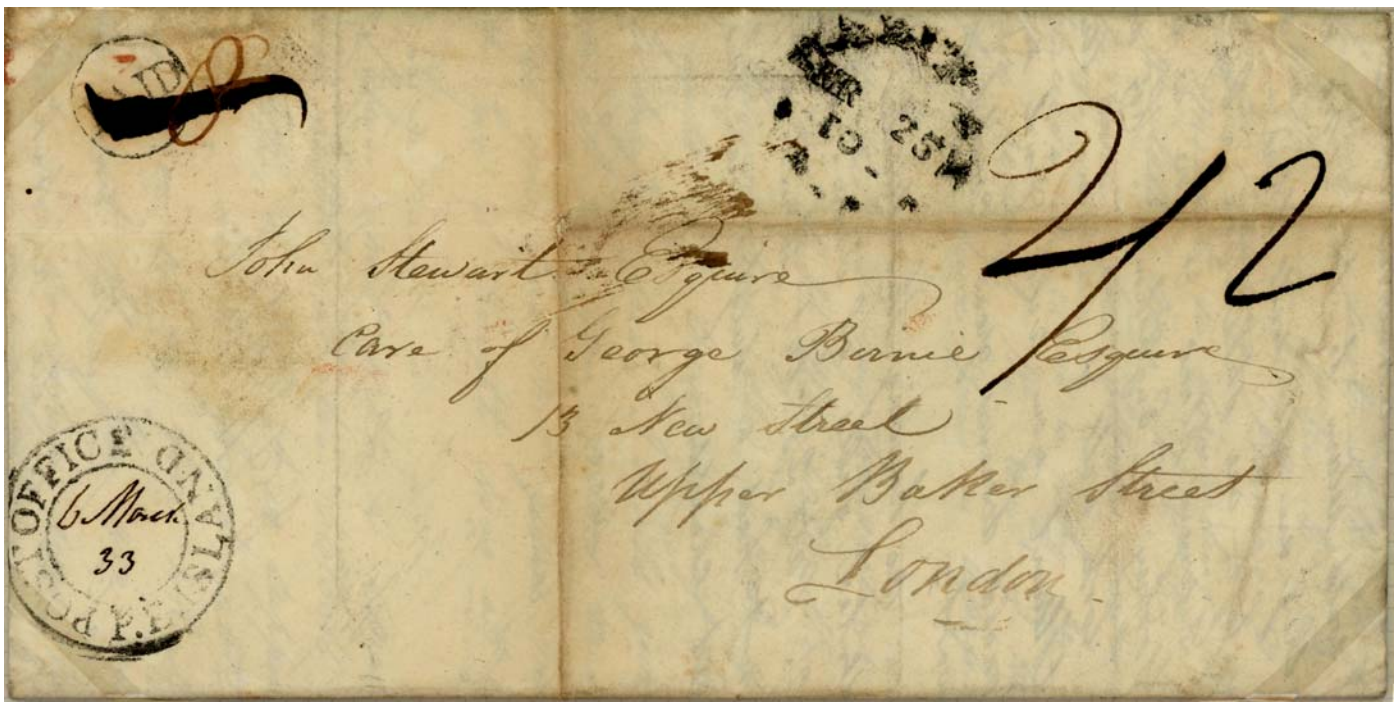 PAID
8
HALIFAX
MR 25
10
2/2
John Stewart Esquire
Care of George Birnie Esquire
13 New Street
Upper Baker Street
London
POST OFFICE P.E ISLAND
6 March
33